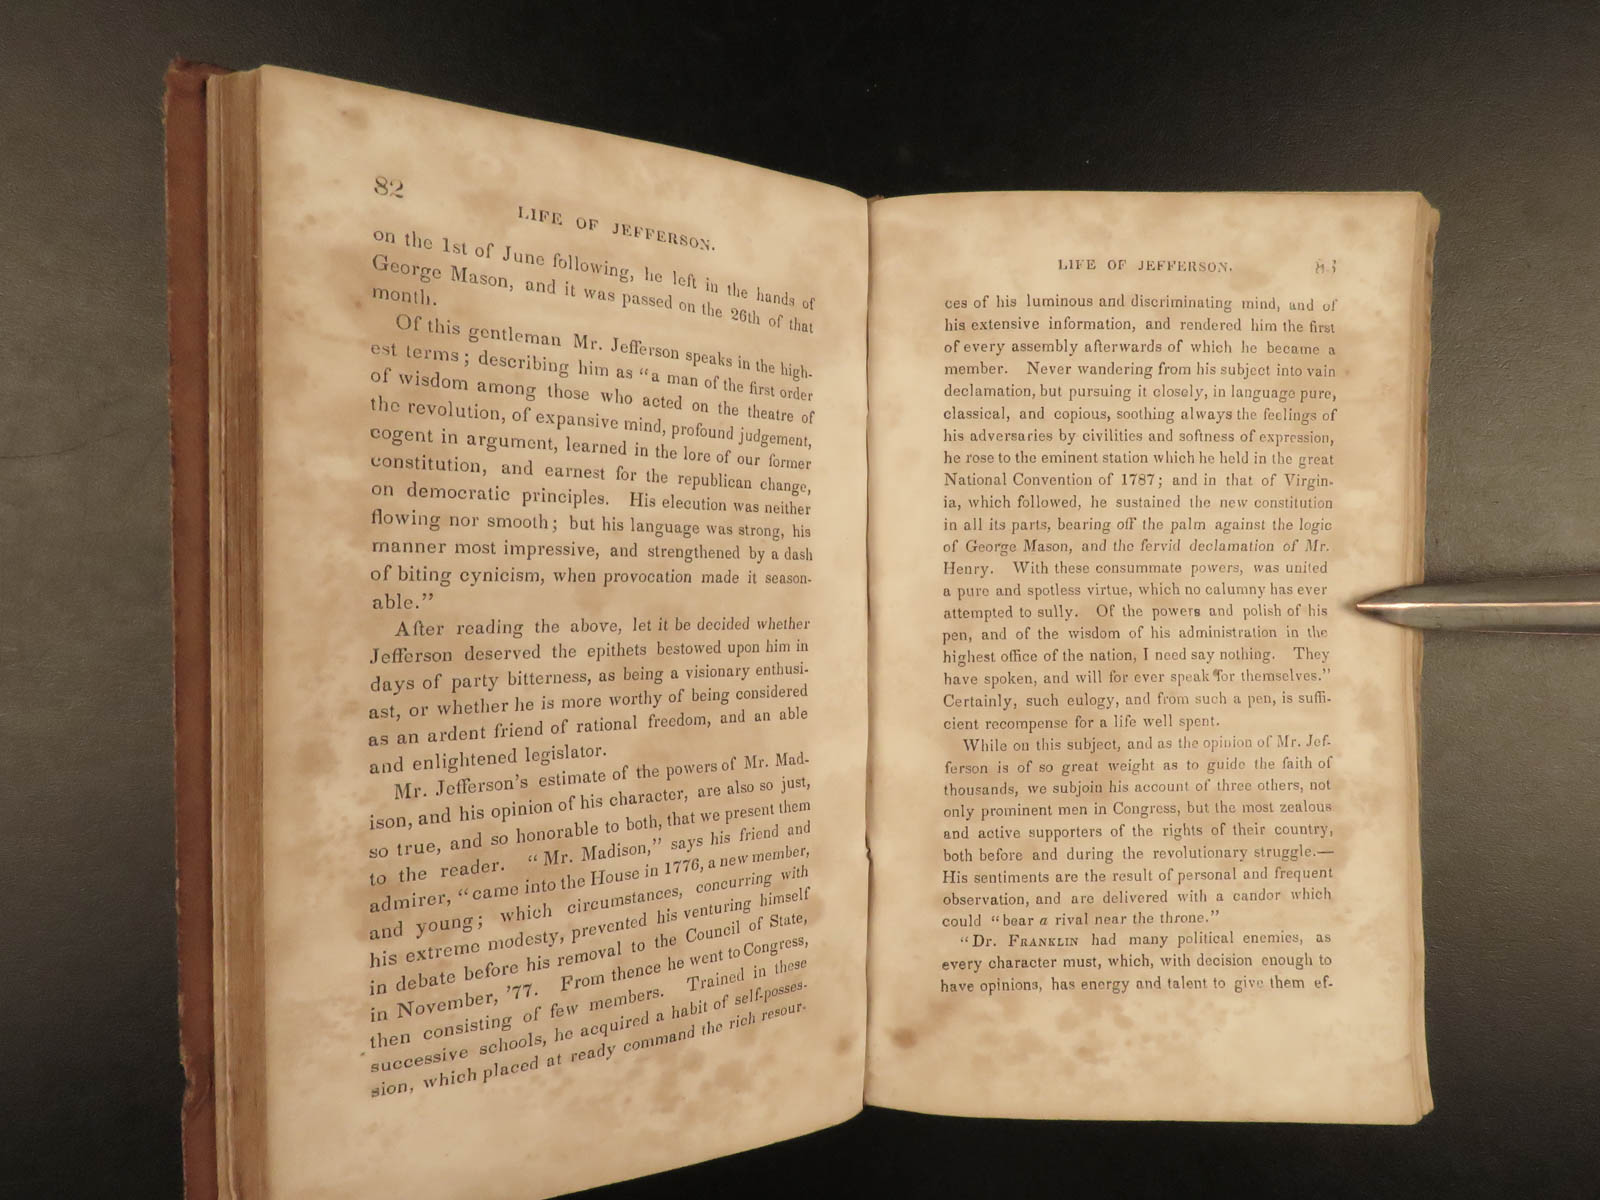 82
LIFE OF JEFFERSON.
on the 1st of June following, he left in the hands of
George Mason, and it was passed on the 26th of that
month.
Of this gentleman Mr. Jefferson speaks in the high-
est terms; describing him as "a man of the first order
of wisdom among those who acted on the theatre of
the revolution, of expansive mind, profound judgement,
cogent in argument, learned in the lore of our former
constitution, and earnest for the republican change,
on democratic principles. His elecution was neither
flowing nor smooth; but his language was strong, his
manner most impressive, and strengthened by a dash
of biting cynicism, when provocation made it season-
able."
After reading the above, let it be decided whether
Jefferson deserved the epithets bestowed upon him in
days of party bitterness, as being a visionary enthusi-
ast, or whether he is more worthy of being considered
as an ardent friend of rational freedom, and an able
and enlightened legislator.
Mr. Jefferson's estimate of the powers of Mr. Mad-
ison, and his opinion of his character, are also so just,
so true, and so honorable to both, that we present them
to the reader. "Mr. Madison," says his friend and
admirer, "came into the House in 1776, a new member,
and young; which circumstances, concurring with
his extreme modesty, prevented his venturing himself
in debate before his removal to the Council of State,
in November, '77. From thence he went to Congress,
then consisting of few members. Trained in these
successive schools, he acquired a habit of self-posses-
sion, which placed at ready command the rich resour-
LIFE OF JEFFERSON. 83
ces of his luminous and discriminating mind, and of
his extensive information, and rendered him the first
of every assembly afterwards of which he became a
member. Never wandering from his subject into vain
declamation, but pursuing it closely, in language pure,
classical, and copious, soothing always the feelings of
his adversaries by civilities and softness of expression,
he rose to the eminent station which he held in the great
National Convention of 1787; and in that of Virgin-
ia, which followed, he sustained the new constitution
in all its parts, bearing off the palm against the logic
of George Mason, and the fervid declamation of Mr.
Henry. With these consummate powers, was united
a pure and spotless virtue, which no calumny has ever
attempted to sully. Of the powers and polish of his
pen, and of the wisdom of his administration in the
highest office of the nation, I need say nothing. They
have spoken, and will for ever speak for themselves."
Certainly, such eulogy, and from such a pen, is suffi-
cient recompense for a life well spent.
While on this subject, and as the opinion of Mr. Jef-
ferson is of so great weight as to guide the faith of
thousands, we subjoin his account of three others, not
only prominent men in Congress, but the most zealous
and active supporters of the rights of their country,
both before and during the revolutionary struggle.—
His sentiments are the result of personal and frequent
observation, and are delivered with a candor which
could "bear a rival near the throne."
"Dr. FRANKLIN had many political enemies, as
every character must, which, with decision enough to
have opinions, has energy and talent to give them ef-